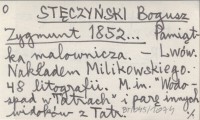 o STĘCZYŃSKI Bogusz
Zygmunt 1852... Pamiąt-
ka malownicza. - Lwów.
Nakładem Milikowskiego.
48 litografii. M. in. "Wodo-
spad w Tatrach" i parę innych
widoków z Tatr.